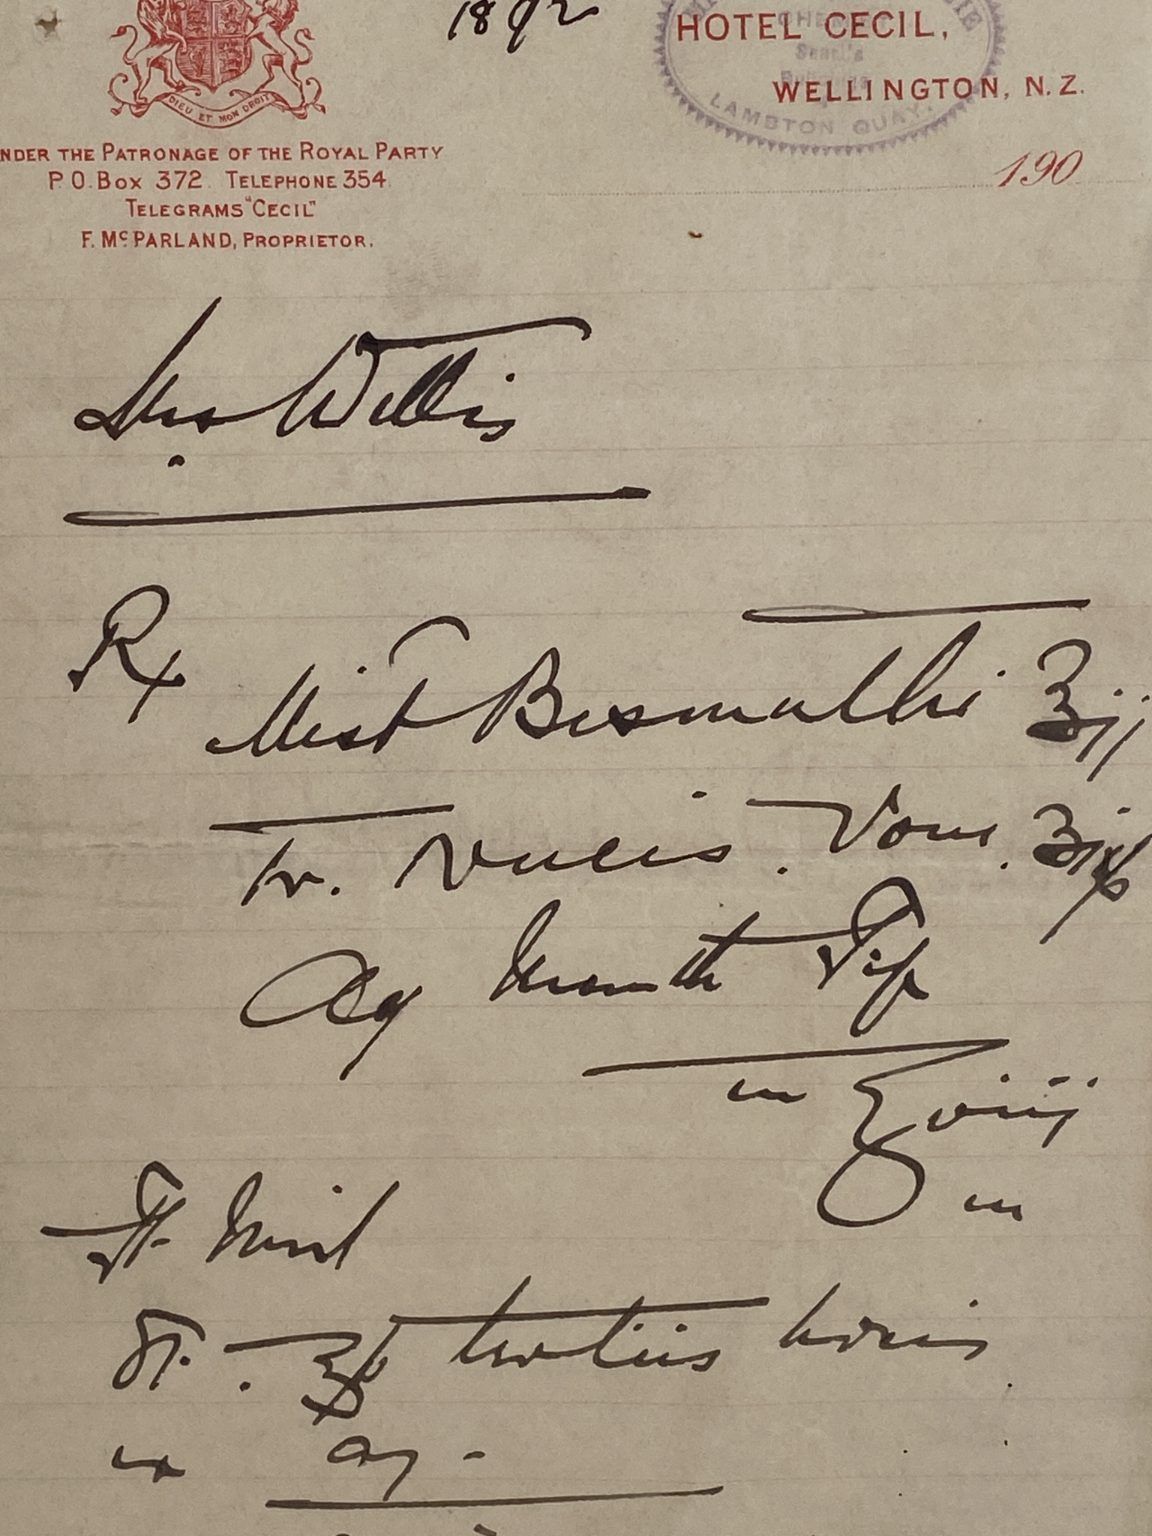 1892
HOTEL CECIL,
WELLINGTON, N.Z.
LAMBTON QUAY.
DIEU ET MON DROIT
NDER THE PATRONAGE OF THE ROYAL PARTY
P.O. Box 372. TELEPHONE 354.
TELEGRAMS "CECIL"
F. McPARLAND, PROPRIETOR.
190
Mrs Willis
Rx
Mist Bismuthi ʒij
Tr. Nucis. Vom. ʒiss
Aq Menth Pip
ʒviij
Ft. Mist
ʒss tertiis horis
ex aq.